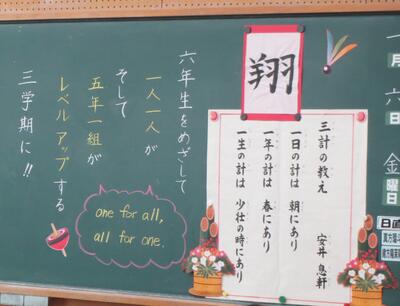 一月六日金曜日
日直
翔
三計の教え 安井 息軒
一日の計は 朝にあり
一年の計は 春にあり
一生の計は 少壮の時にあり
六年生をめざして
一人一人が
そして
五年一組が
レベルアップする
三学期に!!
one for all,
all for one.